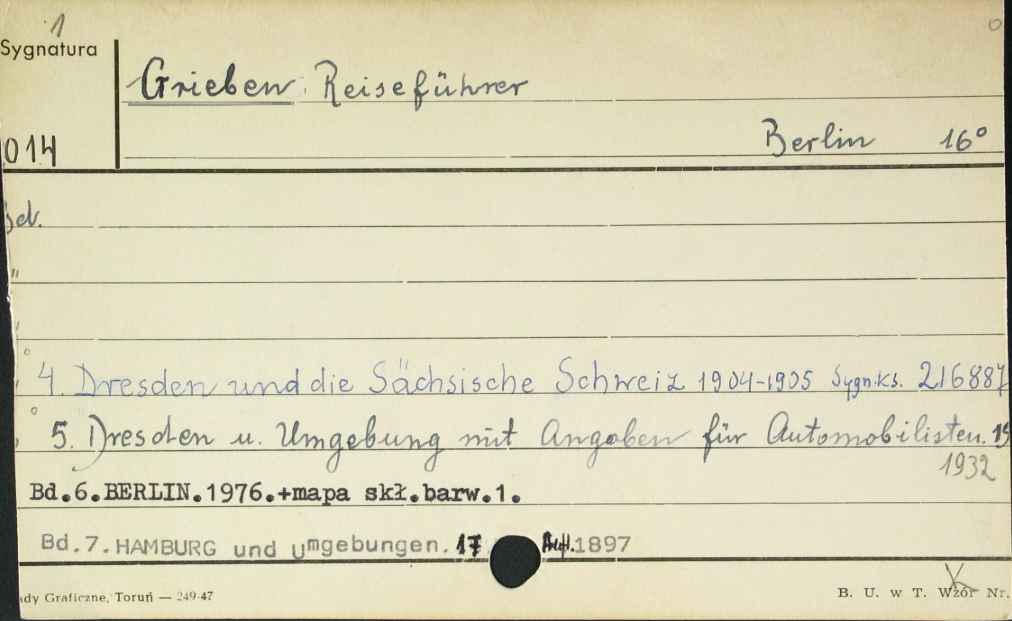 1
Sygnatura
Grieben Reiseführer
014
Berlin 16°
Bd.
"
"
" 4. Dresden und die Sächsische Schweiz 1904-1905 Sygn.Ks. 216887
" 5. Dresden u. Umgebung mit Angaben für Automobilisten. 19
1932
Bd.6.BERLIN.1976.+mapa skł.barw.1.
Bd.7.HAMBURG und Umgebungen.17 Aufl.1897
Graficzne, Toruń — 249-47
B. U. w T. Wzór Nr.